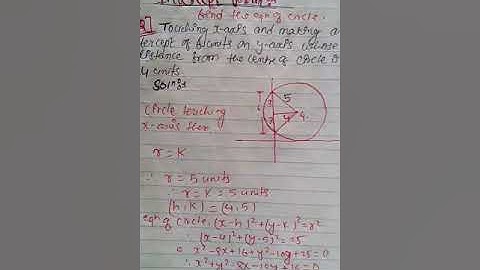 find the eqn of circle.
Q] Touching x-axis and making a
tercept of 6 units on y-axis whose
distance from the centre of circle is
4 units.
Soln:
Circle touching
x-axis then
r = K
∴ r = 5 units
∴ r = K = 5 units
(h, K) = (4, 5)
eqn of circle, (x-h)²+(y-k)²=r²
∴ (x-4)²+(y-5)²=25
x²-8x+16+y²-10y+25=0
∴ x²+y²-8x-10y+16=0
3
3
5
4
4